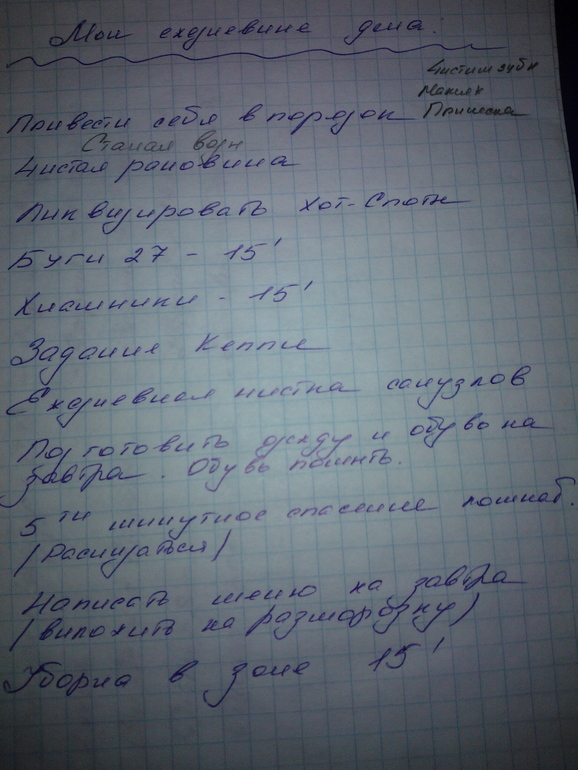 Мои ежедневные дела:
Чистим зубы
Макияж
Прическа
Привести себя в порядок
Стакан воды
Чистая раковина
Ликвидировать Хот-Споты
Буги 27 - 15'
Хламники - 15'
Задания Келли
Ежедневная чистка санузлов
Подготовить одежду и обувь на
завтра. Обувь помыть.
5ти минутное спасение комнаб.
/Расхитаться/
Написать меню на завтра
/выложить на разморозку/
Уборка в зоне 15'